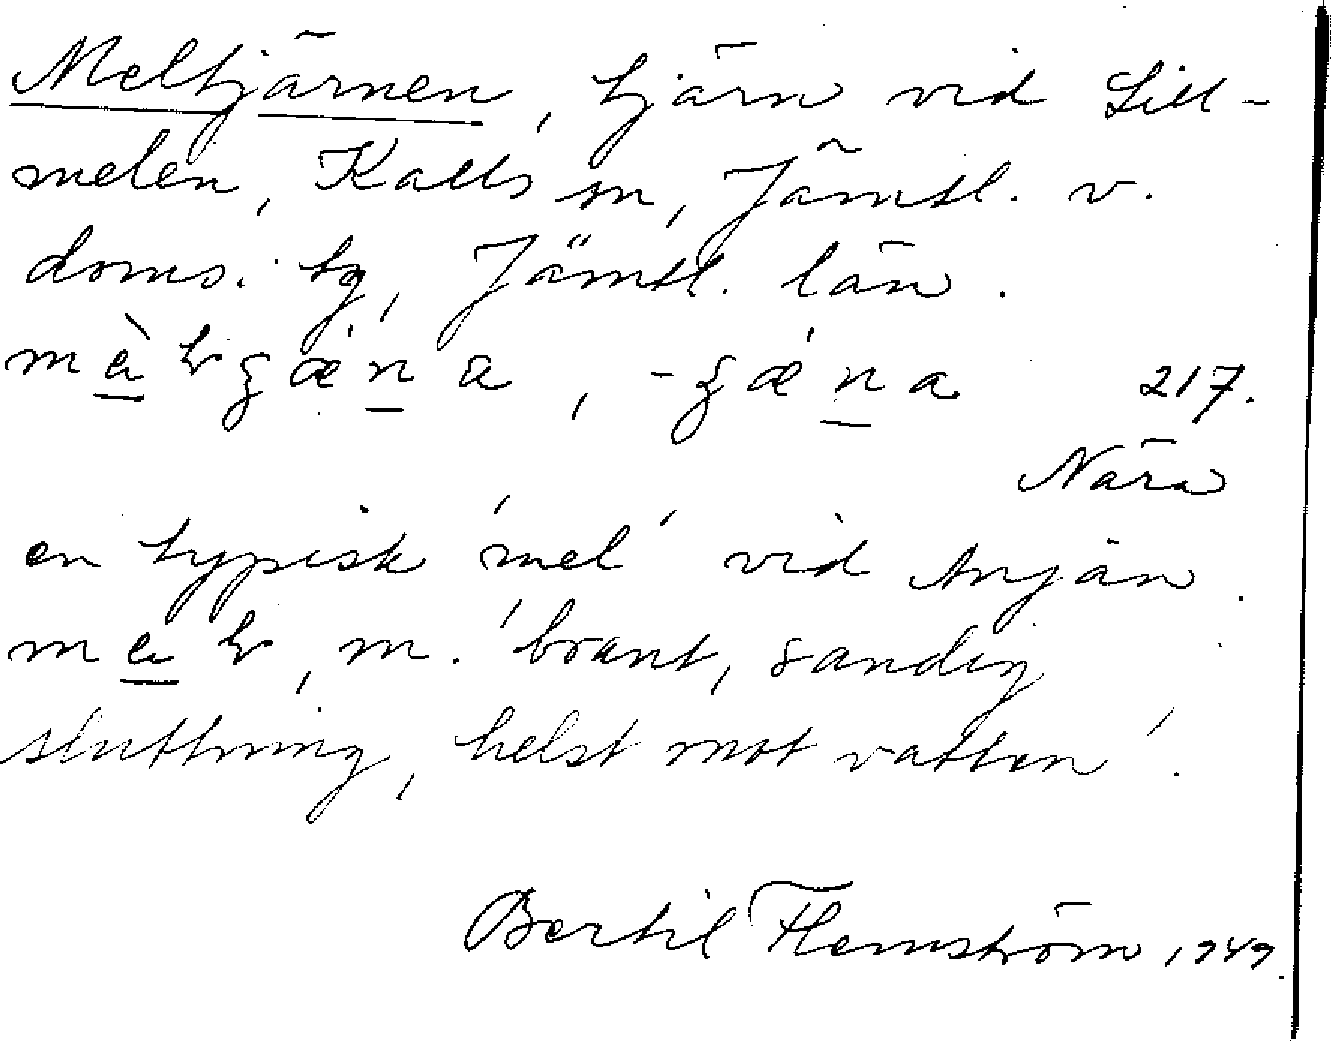 Meltjärnen, tjärn vid Lill-
melen, Kalls sn, Jämtl. v.
doms. tg, Jämtl. län.
217.
Nära
en typisk 'mel' vid Anjan.
m. 'brant, sandig
sluttning, helst mot vatten'.
Bertil Flemström 1949.